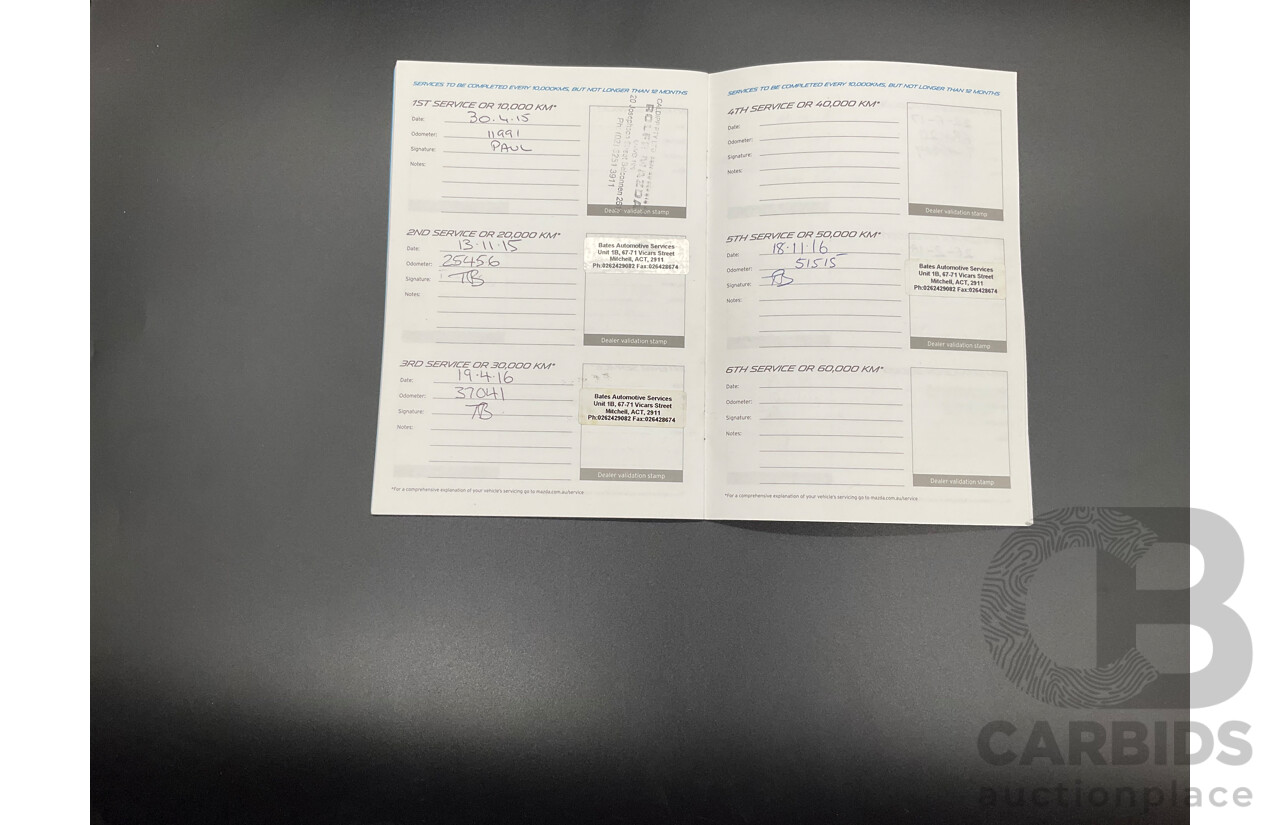 SERVICES TO BE COMPLETED EVERY 10,000KMS, BUT NOT LONGER THAN 12 MONTHS
1ST SERVICE OR 10,000 KM*
Date: 30.4.15
Odometer: 11991
Signature: PAUL
Notes:
Dealer validation stamp
2ND SERVICE OR 20,000 KM*
Date: 13.11.15
Odometer: 25456
Signature: TB
Notes:
Bates Automotive Services
Unit 1B, 67-71 Vicars Street
Mitchell, ACT, 2911
Ph:0262429082 Fax:026428674
Dealer validation stamp
3RD SERVICE OR 30,000 KM*
Date: 19.4.16
Odometer: 37041
Signature: TB
Notes:
Bates Automotive Services
Unit 1B, 67-71 Vicars Street
Mitchell, ACT, 2911
Ph:0262429082 Fax:026428674
Dealer validation stamp
*For a comprehensive explanation of your vehicle's servicing go to mazda.com.au/service
SERVICES TO BE COMPLETED EVERY 10,000KMS, BUT NOT LONGER THAN 12 MONTHS
4TH SERVICE OR 40,000 KM*
Date:
Odometer:
Signature:
Notes:
Dealer validation stamp
5TH SERVICE OR 50,000 KM*
Date: 18.11.16
Odometer: 51515
Signature: TB
Notes:
Bates Automotive Services
Unit 1B, 67-71 Vicars Street
Mitchell, ACT, 2911
Ph:0262429082 Fax:026428674
Dealer validation stamp
6TH SERVICE OR 60,000 KM*
Date:
Odometer:
Signature:
Notes:
Dealer validation stamp
*For a comprehensive explanation of your vehicle's servicing go to mazda.com.au/service
CB
CARBIDS
auctionplace